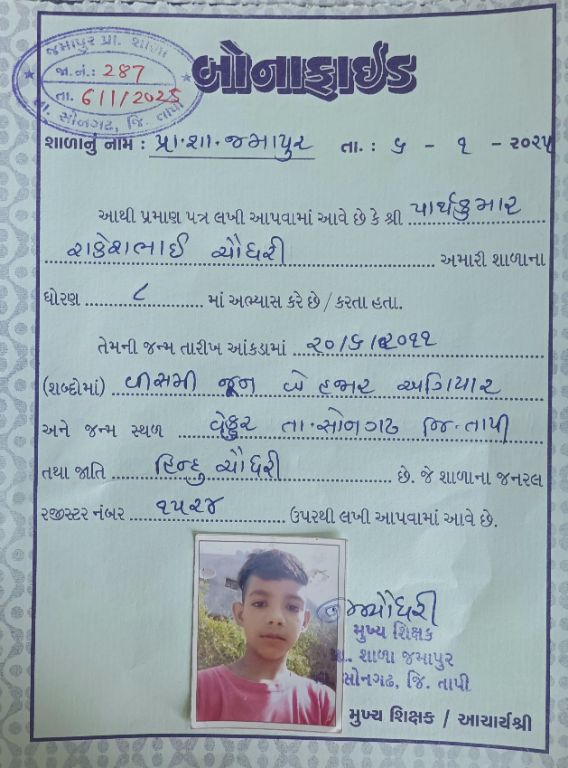 જમાપુર પ્રા. શાળા
જા.નં.: 287
તા. 6/1/2025
તા. સોનગઢ, જિ. તાપી
બોનાફાઈડ
શાળાનું નામ : પ્રા.શા.જમાપુર તા. : ૬ - ૧ - ૨૦૨૫
આથી પ્રમાણ પત્ર લખી આપવામાં આવે છે કે શ્રી પાર્થકુમાર
રાકેશભાઈ ચૌધરી અમારી શાળાના
ધોરણ ૮ માં અભ્યાસ કરે છે / કરતા હતા.
તેમની જન્મ તારીખ આંકડામાં ૨૦/૬/૨૦૧૧
(શબ્દોમાં) વીસમી જૂન બે હજાર અગિયાર
અને જન્મ સ્થળ તા.સોનગઢ જિ.તાપી
તથા જાતિ હિન્દુ ચૌધરી છે. જે શાળાના જનરલ
રજીસ્ટર નંબર ૧૫૨૪ ઉપરથી લખી આપવામાં આવે છે.
મુખ્ય શિક્ષક
પ્રા. શાળા જમાપુર
સોનગઢ, જિ. તાપી
મુખ્ય શિક્ષક / આચાર્યશ્રી